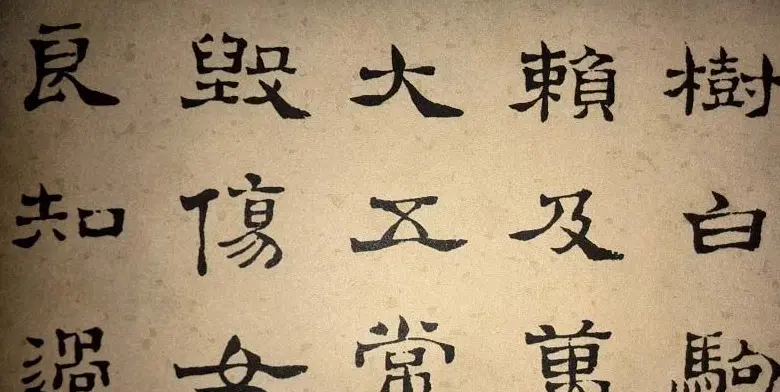 樹白駒
賴及萬
大五常
毀傷女
良知過